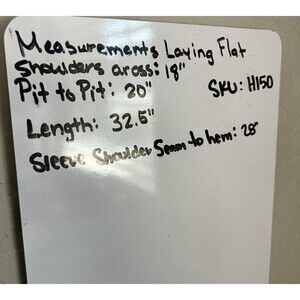 Measurements Laying Flat
Shoulders aross: 18"
Pit to Pit: 20" SKU: H150
Length: 32.5"
Sleeve Shoulder Seam to hem: 28"